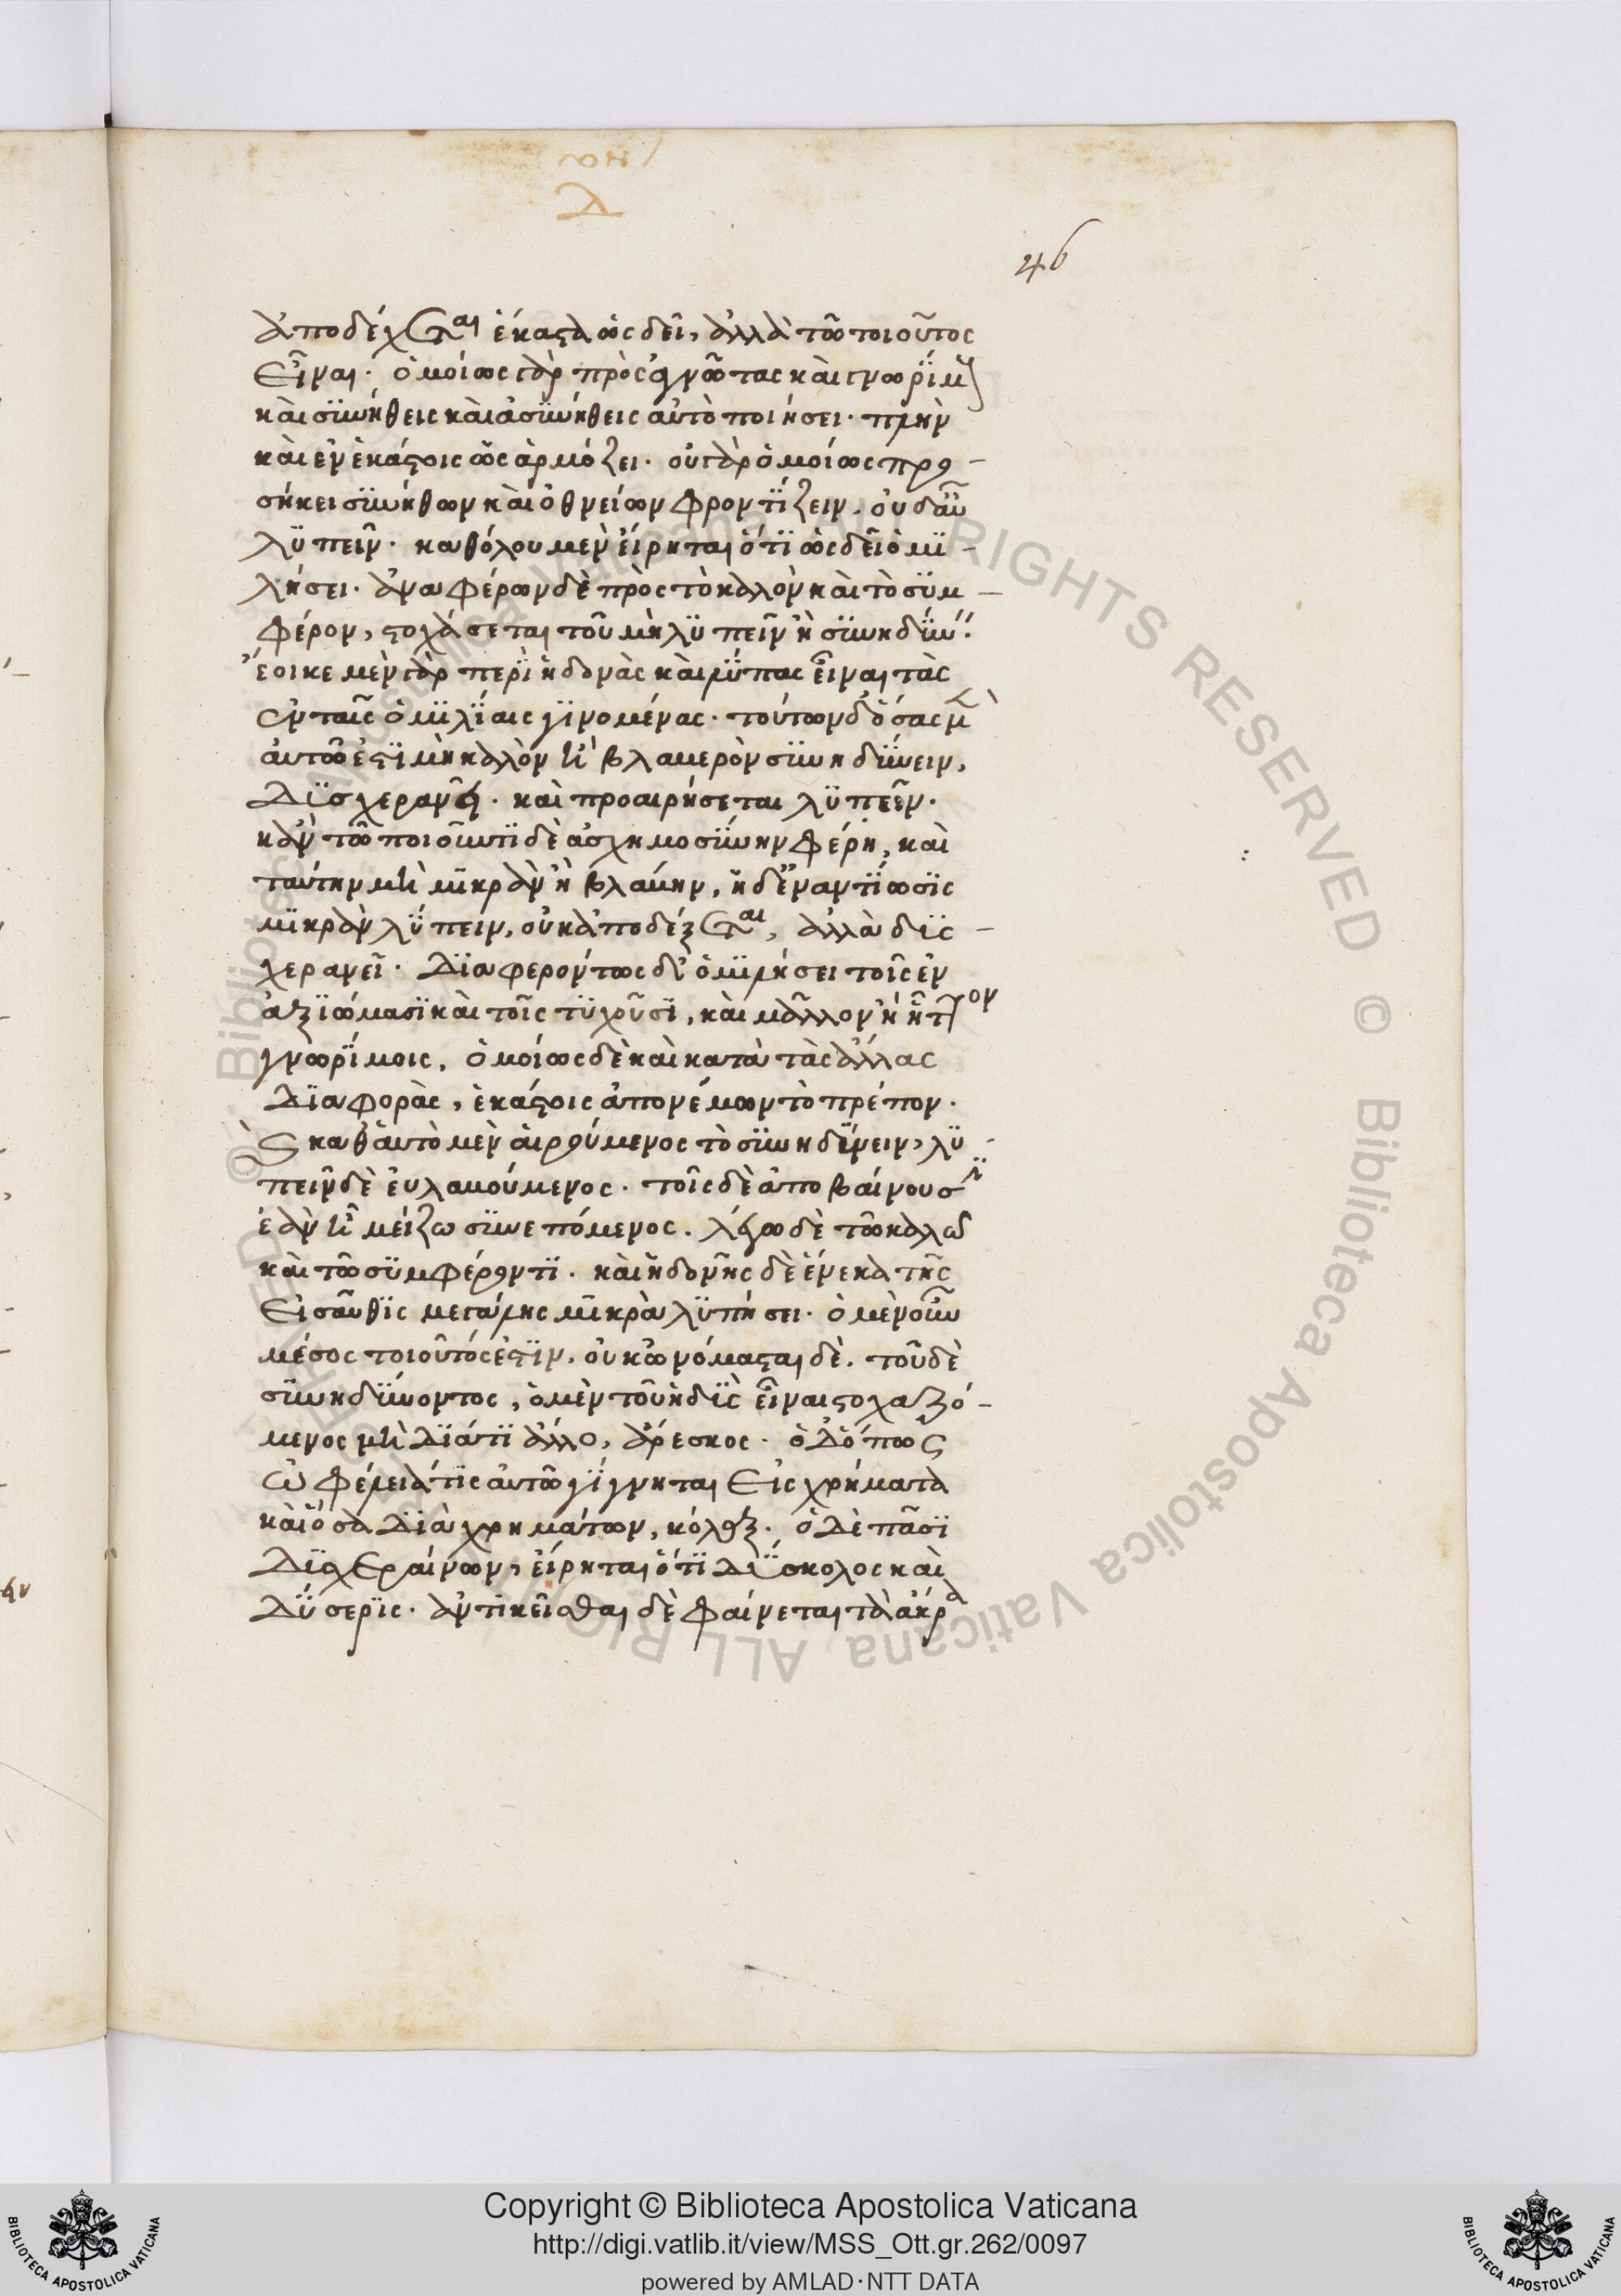 Λ
46
ἀποδέχεσθαι ἕκαστα ὡς δεῖ, ἀλλὰ τῶ τοιοῦτος
εἶναι· ὁμοίως γὰρ πρὸς ἀγνῶτας καὶ γνωρίμους
καὶ συνήθεις καὶ ἀσυνήθεις αὐτὸ ποιήσει· πλὴν
καὶ ἐν ἑκάστοις ὡς ἁρμόζει· οὐ γὰρ ὁμοίως προ-
σήκει συνήθων καὶ ὀθνείων φροντίζειν, οὐδ' αὖ
λυπεῖν· καθόλου μὲν εἴρηται ὅτι ὡς δεῖ ὁμι-
λήσει· ἀναφέρων δὲ πρὸς τὸ καλὸν καὶ τὸ συμ-
φέρον, στοχάσεται τοῦ μὴ λυπεῖν ἢ συνηδύνειν·
ἔοικε μὲν γὰρ περὶ ἡδονὰς καὶ λύπας εἶναι τὰς
ἐν ταῖς ὁμιλίαις γινομένας· τούτων δ' ὅσας μὲν
αὐτῶ ἐστὶ μὴ καλὸν ἢ βλαβερὸν συνηδύνειν,
δυσχερανεῖ· καὶ προαιρήσεται λυπεῖν·
κἂν τῶ ποιοῦντι δὲ ἀσχημοσύνην φέρη, καὶ
ταύτην μὴ μικρὰν ἢ βλάβην, ἡ δ' ἐναντίωσις
μικρὰν λύπην, οὐκ ἀποδέξεται, ἀλλὰ δυσ-
χερανεῖ· διαφερόντως δ' ὁμιλήσει τοῖς ἐν
ἀξιώμασι καὶ τοῖς τυχοῦσι, καὶ μᾶλλον ἢ ἧττον
γνωρίμοις, ὁμοίως δὲ καὶ κατὰ τὰς ἄλλας
διαφορὰς, ἑκάστοις ἀπονέμων τὸ πρέπον·
καὶ καθ' αὑτὸ μὲν αἱρούμενος τὸ συνηδύνειν, λυ-
πεῖν δὲ εὐλαβούμενος· τοῖς δὲ ἀποβαίνουσιν
ἐὰν ἦ μείζω συνεπόμενος. λέγω δὲ τῶ καλῶ
καὶ τῶ συμφέροντι· καὶ ἡδονῆς δὲ ἕνεκα τῆς
εἰσαῦθις μεγάλης μικρὰ λυπήσει· ὁ μὲν οὖν
μέσος τοιοῦτός ἐστιν, οὐκ ὠνόμασται δὲ. τοῦ δὲ
συνηδύνοντος, ὁ μὲν τοῦ ἡδὺς εἶναι στοχαζό-
μενος μὴ διά τι ἄλλο, ἄρεσκος· ὁ δ' ὅπως
ὠφέλειά τις αὐτῶ γίγνηται εἰς χρήματα
καὶ ὅσα διὰ χρημάτων, κόλαξ· ὁ δὲ πᾶσι
δυσχεραίνων, εἴρηται ὅτι δύσκολος καὶ
δύσερις· ἀντικεῖσθαι δὲ φαίνεται τὰ ἄκρα
Copyright © Biblioteca Apostolica Vaticana
http://digi.vatlib.it/view/MSS_Ott.gr.262/0097
powered by AMLAD·NTT DATA
BIBLIOTECA APOSTOLICA VATICANA
BIBLIOTECA APOSTOLICA VATICANA
© Biblioteca Apostolica Vaticana ALL RIGHTS RESERVED © Biblioteca Apostolica Vaticana ALL RIGHTS RESERVED